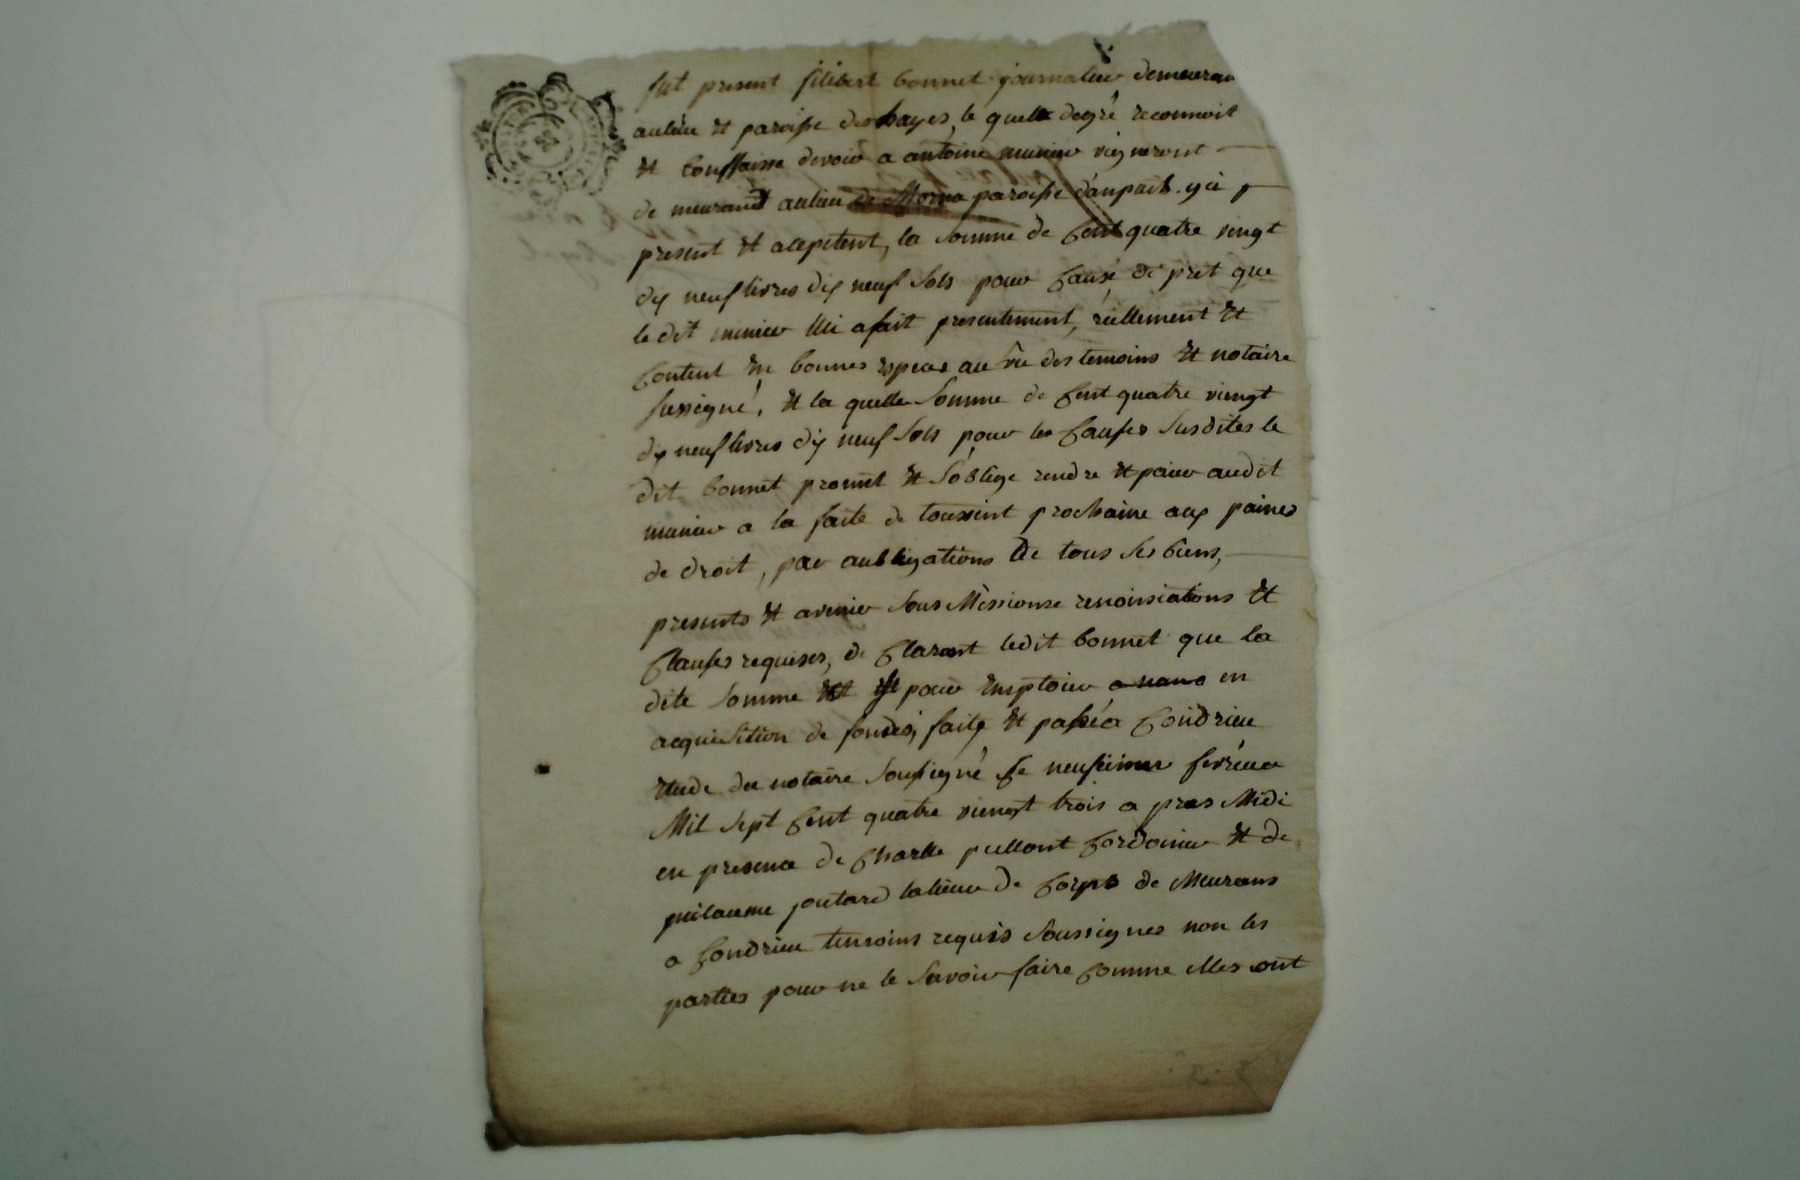 fut present filibert bonnet journalier demeuran
aulieu et paroisse des hayes, le quelle degré reconnoit
et conffaisse devoir a antoine munier vigneront
de meurand aulieu paroisse d'anpuit. yci
present et aceptent, la somme de cent quatre vingt
dix neuf livres dix neuf sols pour cause de pret que
le dit munier lui a fait presentement, reellement et
content en bonnes espece au vu des temoins et notaire
sussigné, et la quelle somme de cent quatre viengt
dix neuf livres dix neuf sols pour les causes susdites le
dit bonnet promet et s'oblige rendre et paier audit
munier a la faite de toussint prochaine aux paines
de droit, par aubligations de tous ses biens,
presents et avenir sous Missionse renoinsiations et
clauses requises, de clarant ledit bonnet que la
dite somme et est pour emploier en
acquisition de fondes, faite et passé a condrieu
etude du notaire soussigné ce neufieime fevrier
Mil sept cent quatre viengt trois a pres Midi
en presence de charlle pellont cordonier et de
guilaume joutard talieur de corps de Meurans
a condrieu temoins requis soussignes non les
parties pour ne le savoir faire comme elles ont